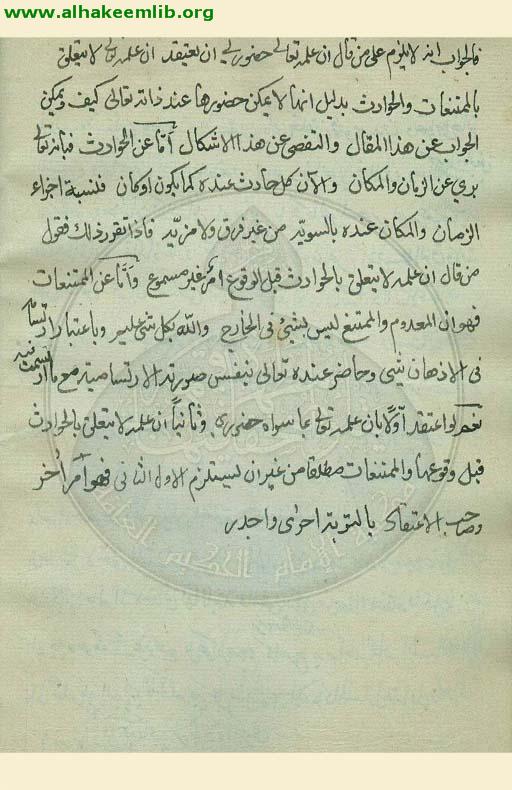 www.alhakeemlib.org
فالجواب انه لا يلزم على من قال ان علمه تعالى حضوري ان يعتقد ان علمه تعالى لا يتعلق
بالممتنعات والحوادث بدليل انها لا يمكن حضورها عند ذاته تعالى كيف ويمكن
الجواب عن هذا المقال والتفصى عن هذا الاشكال أمّا عن الحوادث فبانه تعالى
بري عن الزمان والمكان والآن كل حادث عنده كما يكون او كان فنسبة اجزاء
الزمان والمكان عنده بالسويّه من غير فرق ولا مزيّه فاذا تقرر ذلك فقول
من قال ان علمه لا يتعلق بالحوادث قبل الوقوع امر غير مسموع وأمّا عن الممتنعات
فهو ان المعدوم والممتنع ليس بشيئ في الخارج والله بكل شئ عليم وباعتبار ارتسامه
في الاذهان شئ وحاضر عنده تعالى بنفس صورته الارتسامية مع ما ارتسمت فيه
نعم لو اعتقد اوّلا بان علمه تعالى بما سواه حضوري وثانياً ان علمه لا يتعلق بالحوادث
قبل وقوعها والممتنعات مطلقا من غير ان يستلزم الاول الثاني فهو أمر آخر
وصاحب الاعتقاد بالتوبة احرى واجدر